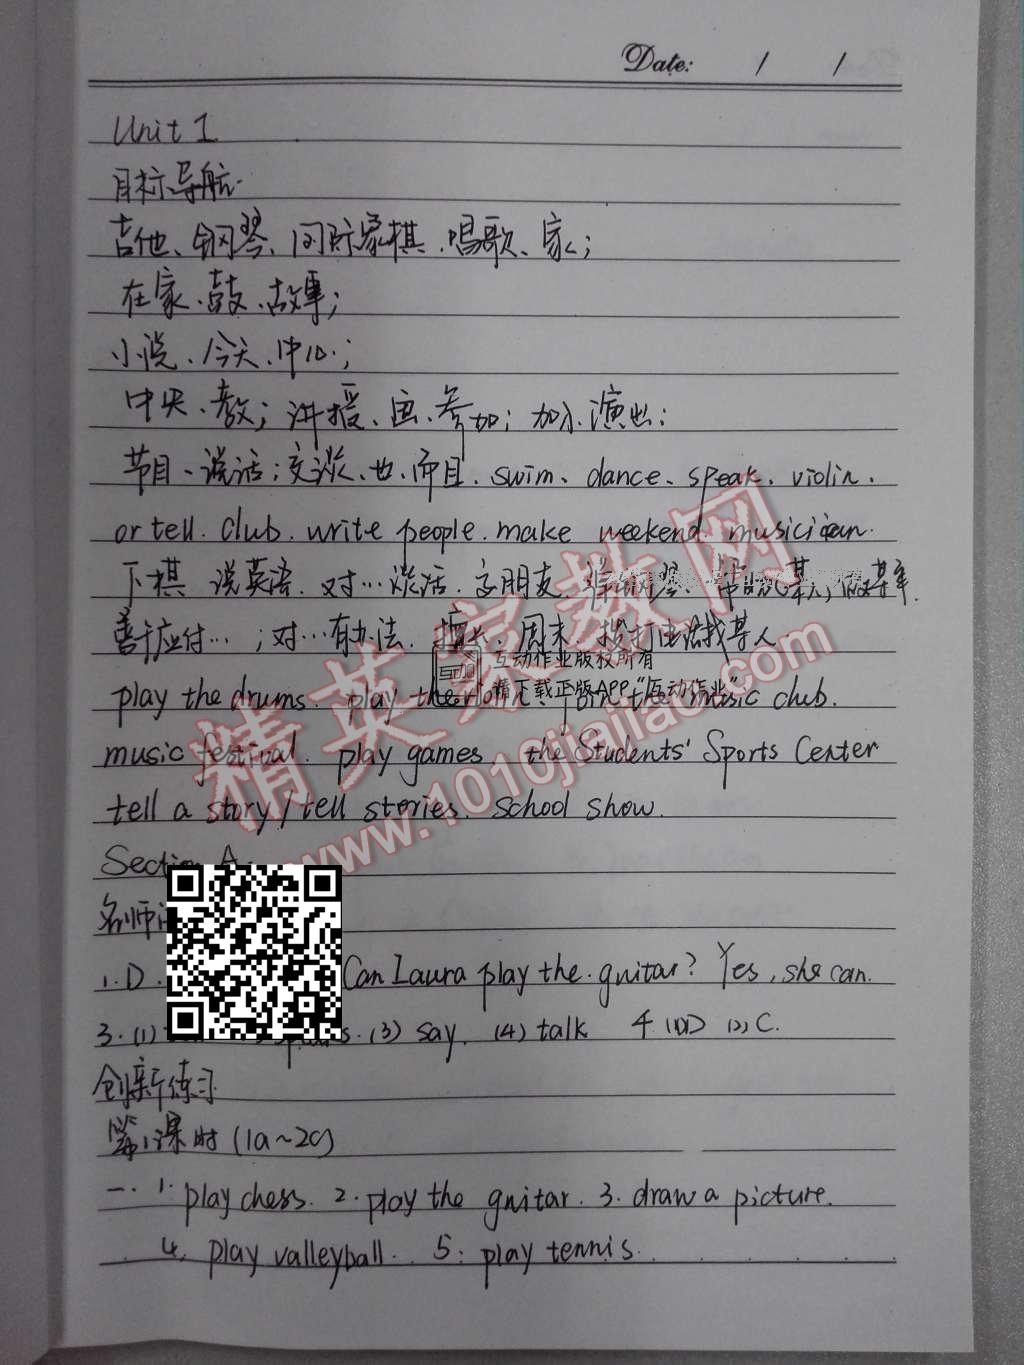 Date: / /
Unit 1
目标导航
吉他、钢琴、国际象棋、唱歌、家;
在家、鼓、故事;
小说、今天、中心;
中央、教;讲授、画、参加;加入、演出;
节目、说话;交谈、也、而且、swim、dance、speak、violin、
or tell. club. write people. make weekend. musician.
下棋 说英语. 对…说话. 交朋友. 弹钢琴、帮助某人做某事.
善于应付…;对…有办法. 擅长. 周末. 拨打电话找某人
互动作业版权所有
请下载正版APP"互动作业"
play the drums. play the violin. the music club.
music festival. play games the Students' Sports Center
tell a story / tell stories. school show.
Section A
名师
1. D. Can Laura play the guitar? Yes, she can.
3. (1) (3) say. (4) talk 4 (1)D (2)C.
创新练习
第1课时 (1a~2c)
一. 1. play chess. 2. play the guitar. 3. draw a picture.
4. play valleyball. 5. play tennis.
精英家教网
www.1010jiajiao.com